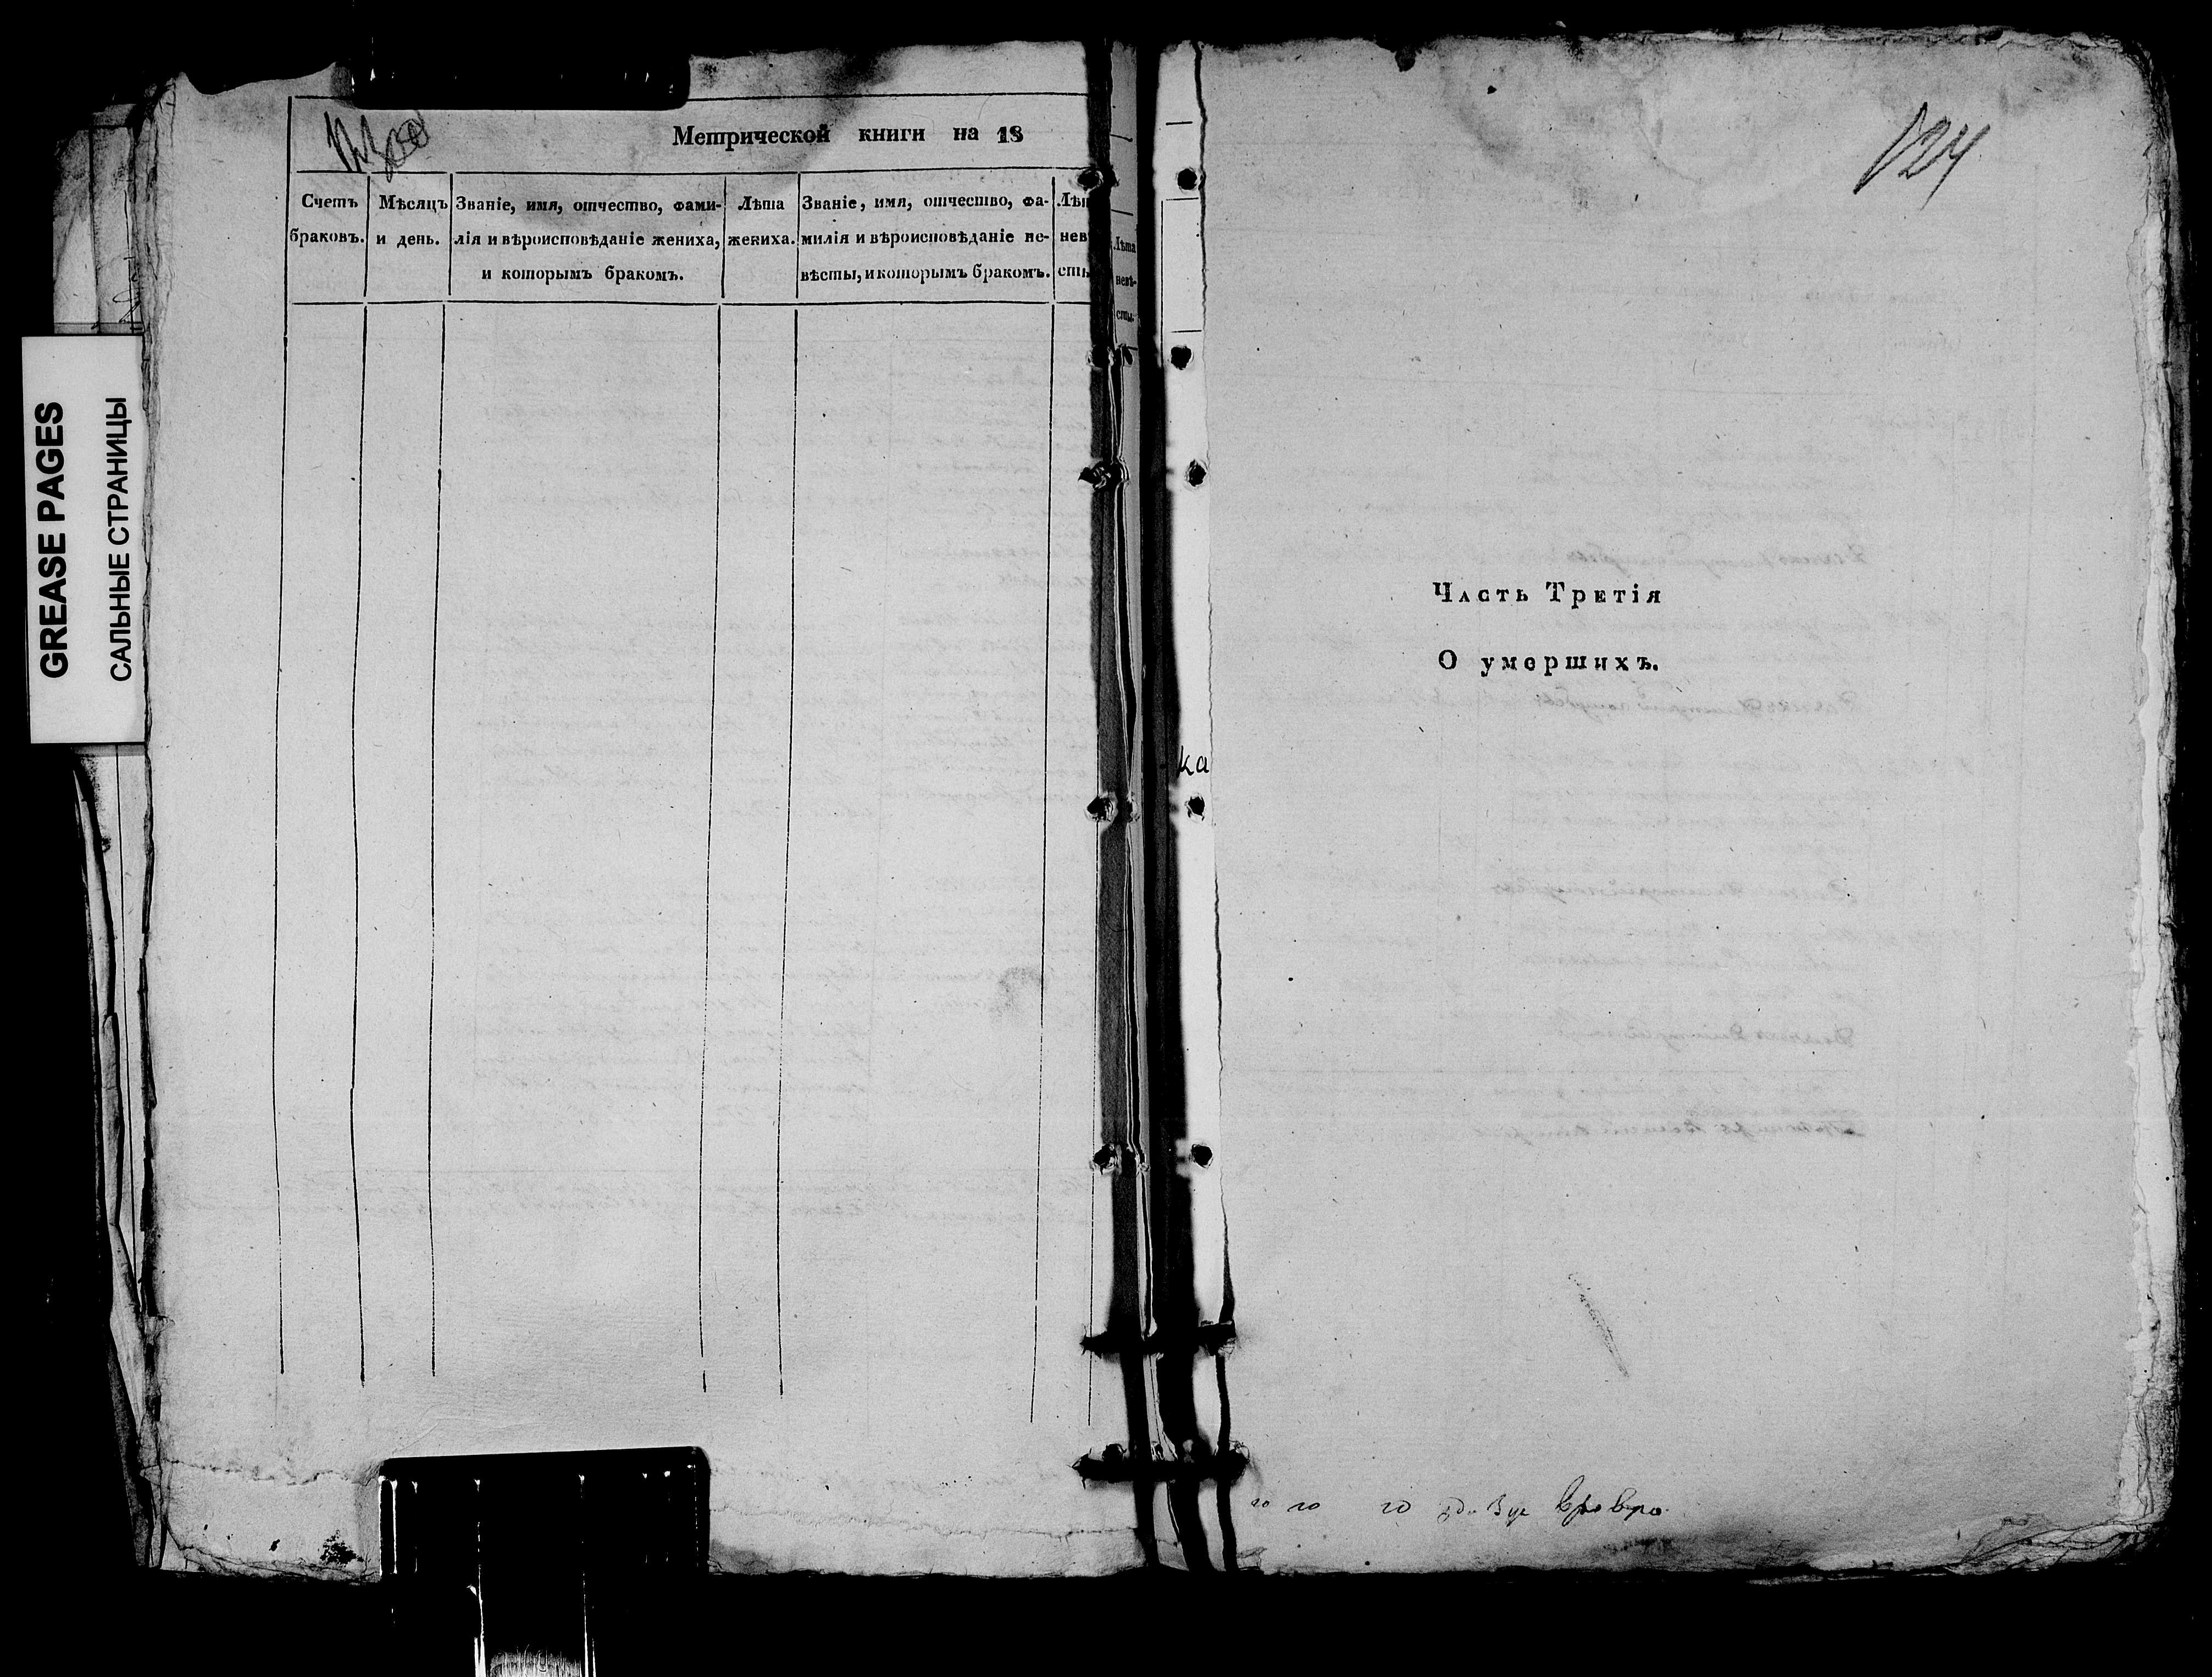 GREASE PAGES
САЛЬНЫЕ СТРАНИЦЫ
Метрической книги на 18
Счетъ браковъ.
Мѣсяцъ и день.
Званіе, имя, отчество, фами-
лія и вѣроисповѣданіе жениха,
и которымъ бракомъ.
Лѣта
жениха.
Званіе, имя, отчество, фа-
милія и вѣроисповѣданіе не-
вѣсты, и которымъ бракомъ.
Лѣт
нев
сты
Лѣта
невѣ-
сты.
ка
124
Часть Третія
О умершихъ.
го го го